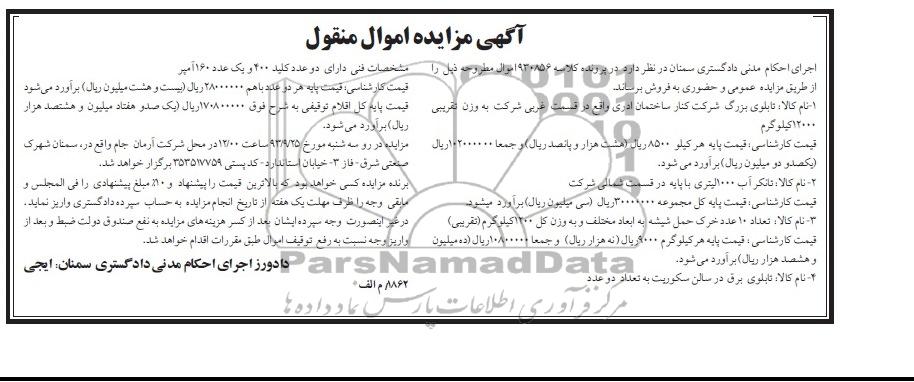 آگهی مزایده اموال منقول
اجرای احکام مدنی دادگستری سمنان در نظر دارد در پرونده کلاسه ۹۳۰۸۵۶ اموال مطروحه ذیل را
از طریق مزایده عمومی و حضوری به فروش برساند.
۱-نام کالا: تابلوی بزرگ شرکت کنار ساختمان اداری واقع در قسمت غربی شرکت به وزن تقریبی
۱۲۰۰۰کیلوگرم
قیمت کارشناسی: قیمت پایه هر کیلو ۸۵۰۰ ریال (هشت هزار و پانصد ریال) و جمعا ۱۰۲۰۰۰۰۰۰ریال
(یکصدو دو میلیون ریال) برآورد می شود.
۲-نام کالا: تانکر آب ۱۰۰۰لیتری با پایه در قسمت شمالی شرکت
قیمت کارشناسی: قیمت پایه کل مجموعه ۳۰۰۰۰۰۰۰ریال (سی میلیون ریال) برآورد میشود.
۳-نام کالا: تعداد ۱۰عدد خرک حمل شیشه به ابعاد مختلف و به وزن کل ۱۲۰۰کیلوگرم (تقریبی)
قیمت کارشناسی: قیمت پایه هر کیلوگرم ۹۰۰۰ریال (نه هزار ریال) و جمعا ۱۰۸۰۰۰۰۰ریال (ده میلیون
و هشصد هزار ریال) برآورد می‌شود.
۴-نام کالا: تابلوی برق در سالن سکوریت به تعداد دو عدد
مشخصات فنی دارای دو عدد کلید ۴۰۰ و یک عدد ۱۶۰آمپر
قیمت کارشناسی: قیمت پایه هر دو عدد باهم ۲۸۰۰۰۰۰۰ریال (بیست و هشت میلیون ریال) برآورد می‌شود
قیمت پایه کل اقلام توقیفی به شرح فوق ۱۷۰۸۰۰۰۰۰ریال (یک صدو هفتاد میلیون و هشتصد هزار
ریال) برآورد می‌شود.
مزایده در رو سه شنبه مورخ ۹۳/۹/۲۵ ساعت ۱۲/۰۰ در محل شرکت آرمان جام واقع در، سمنان شهرک
صنعتی شرق- فاز ۳- خیابان استاندارد- کدپستی ۳۵۳۵۱۷۷۵۹ برگزار خواهد شد.
برنده مزایده کسی خواهد بود که بالاترین قیمت را پیشنهاد و ۱۰٪ مبلغ پیشنهادی را فی المجلس و
مابقی وجه را ظرف مهلت یک هفته از تاریخ انجام مزایده به حساب سپرده دادگستری واریز نماید.
در غیر اینصورت وجه سپرده ایشان بعد از کسر هزینه‌های مزایده به نفع صندوق دولت ضبط و بعد از
واریز وجه نسبت به رفع توقیف اموال طبق مقررات اقدام خواهد شد.
دادورز اجرای احکام مدنی دادگستری سمنان: ایجی
۱۸۶۲/ م الف*
ParsNamadData
مرکز فرآوری اطلاعات پارس نماد داده ها